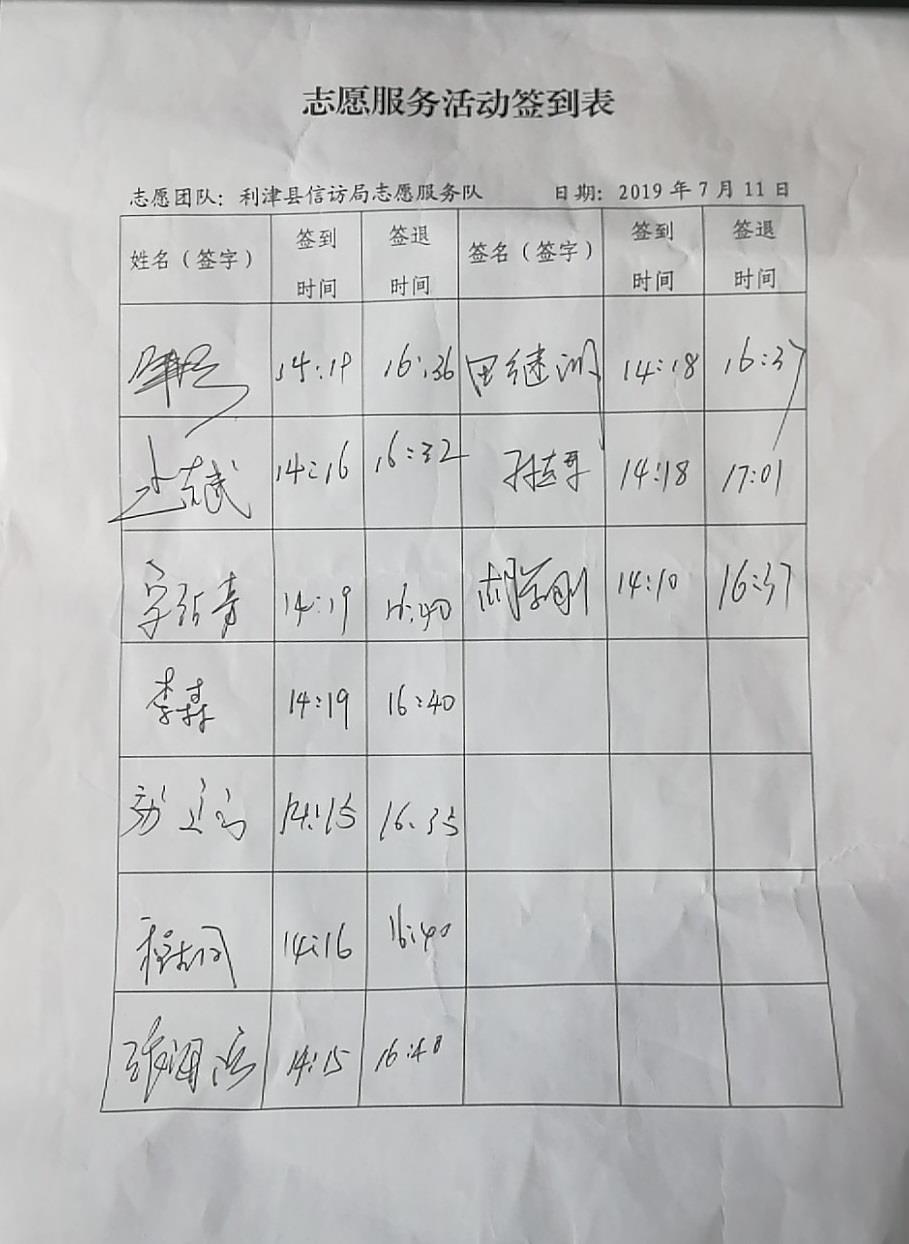 志愿服务活动签到表
志愿团队：利津县信访局志愿服务队 日期：2019年7月11日
姓名（签字） 签到时间 签退时间 签名（签字） 签到时间 签退时间
14:19 16:36 14:18 16:37
14:16 16:32 14:18 17:01
14:19 16:40 胡学刚 14:10 16:37
李森 14:19 16:40
14:15 16.35
14:16 16:40
14:15 16:40